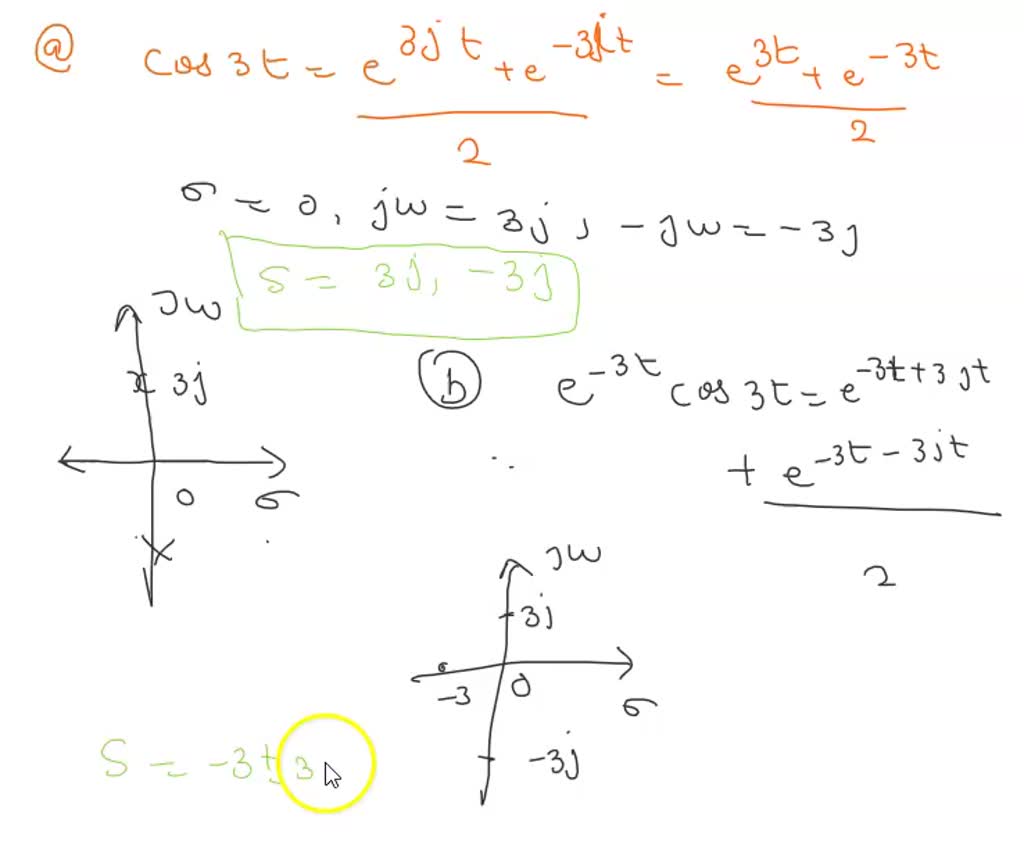 ⓐ cos 3t = e^{3jt} + e^{-3jt} / 2 = e^{3t} + e^{-3t} / 2
σ = 0, jω = 3j, -jω = -3j
S = 3j, -3j
jω
3j
0 σ
ⓑ e^{-3t} cos 3t = e^{-3t+3jt}
+ e^{-3t-3jt}
2
jω
3j
-3 0
σ
-3j
S = -3 ± 3